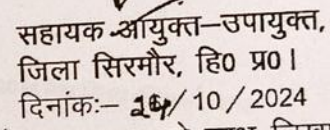 सहायक आयुक्त–उपायुक्त,
जिला सिरमौर, हि0 प्र0।
दिनांकः– 24/10/2024